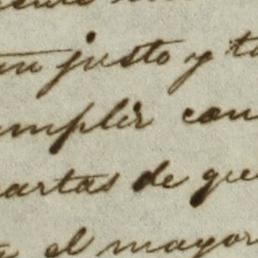 un justo y t
umplir con
cartas de que
el mayor